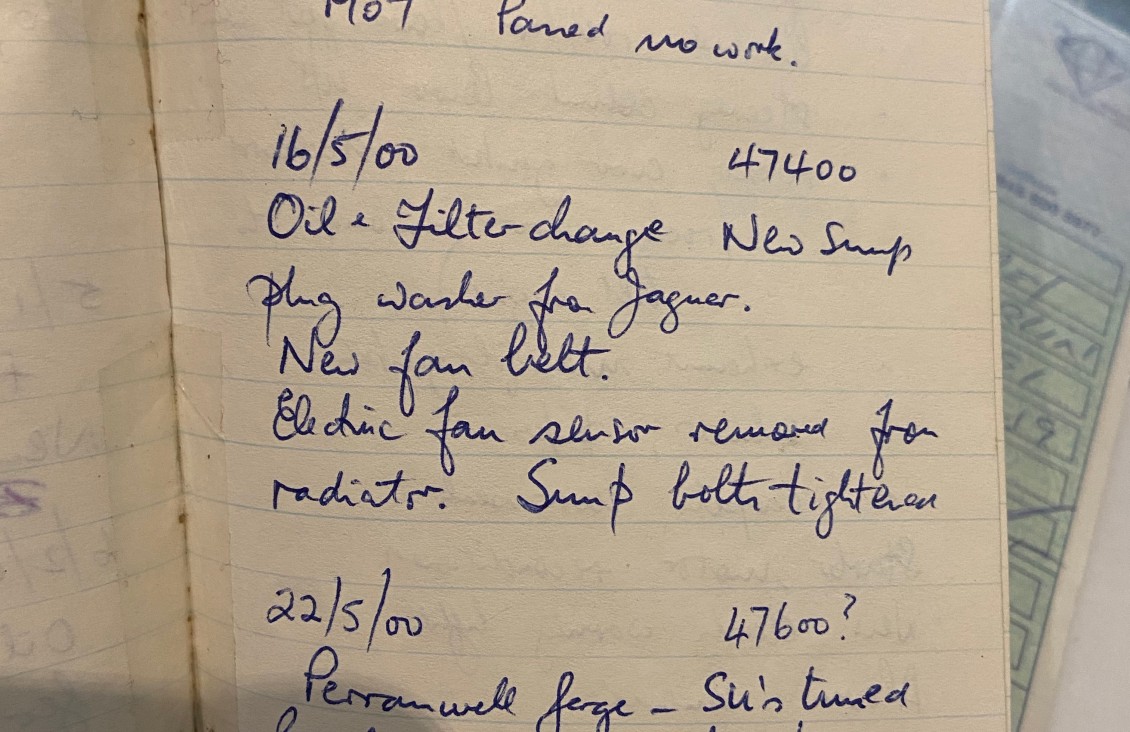 MOT Passed no work.
16/5/00 47400
Oil & Filter change New Sump
plug washer from Jaguar.
New fan belt.
Electric fan sensor removed from
radiator. Sump bolts tightened
22/5/00 47600?
Perranwell forge - SU's tuned